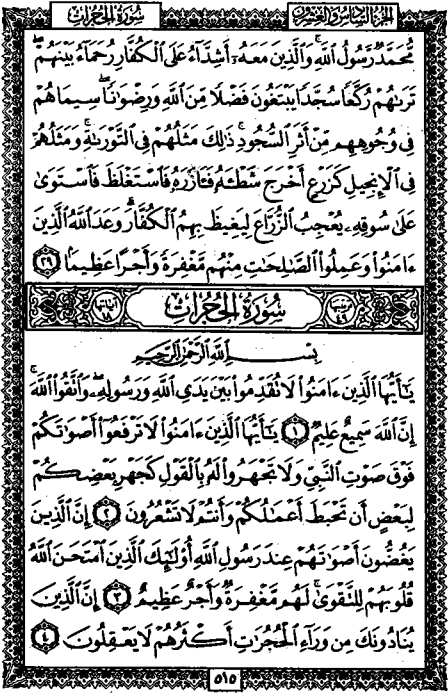 سُورَةُ الحُجُرَاتِ
الجُزْءُ السَّادِسُ وَالعِشْرُونَ
مُّحَمَّدٌ رَّسُولُ اللَّهِ وَالَّذِينَ مَعَهُ أَشِدَّاءُ عَلَى الْكُفَّارِ رُحَمَاءُ بَيْنَهُمْ
تَرَىٰهُمْ رُكَّعًا سُجَّدًا يَبْتَغُونَ فَضْلًا مِّنَ اللَّهِ وَرِضْوَٰنًا سِيمَاهُمْ
فِي وُجُوهِهِم مِّنْ أَثَرِ السُّجُودِ ذَٰلِكَ مَثَلُهُمْ فِي التَّوْرَىٰةِ وَمَثَلُهُمْ
فِي الْإِنجِيلِ كَزَرْعٍ أَخْرَجَ شَطْـَٔهُ فَـَٔازَرَهُ فَاسْتَغْلَظَ فَاسْتَوَىٰ
عَلَىٰ سُوقِهِ يُعْجِبُ الزُّرَّاعَ لِيَغِيظَ بِهِمُ الْكُفَّارَ وَعَدَ اللَّهُ الَّذِينَ
ءَامَنُوا وَعَمِلُوا الصَّٰلِحَٰتِ مِنْهُم مَّغْفِرَةً وَأَجْرًا عَظِيمًا ٢٩
سُورَةُ الحُجُرَاتِ
بِسْمِ اللَّهِ الرَّحْمَٰنِ الرَّحِيمِ
يَٰٓأَيُّهَا الَّذِينَ ءَامَنُوا لَا تُقَدِّمُوا بَيْنَ يَدَيِ اللَّهِ وَرَسُولِهِ وَاتَّقُوا اللَّهَ
إِنَّ اللَّهَ سَمِيعٌ عَلِيمٌ ١ يَٰٓأَيُّهَا الَّذِينَ ءَامَنُوا لَا تَرْفَعُوا أَصْوَٰتَكُمْ
فَوْقَ صَوْتِ النَّبِيِّ وَلَا تَجْهَرُوا لَهُ بِالْقَوْلِ كَجَهْرِ بَعْضِكُمْ
لِبَعْضٍ أَن تَحْبَطَ أَعْمَٰلُكُمْ وَأَنتُمْ لَا تَشْعُرُونَ ٢ إِنَّ الَّذِينَ
يَغُضُّونَ أَصْوَٰتَهُمْ عِندَ رَسُولِ اللَّهِ أُولَٰٓئِكَ الَّذِينَ امْتَحَنَ اللَّهُ
قُلُوبَهُمْ لِلتَّقْوَىٰ لَهُم مَّغْفِرَةٌ وَأَجْرٌ عَظِيمٌ ٣ إِنَّ الَّذِينَ
يُنَادُونَكَ مِن وَرَاءِ الْحُجُرَٰتِ أَكْثَرُهُمْ لَا يَعْقِلُونَ ٤
٥١٥